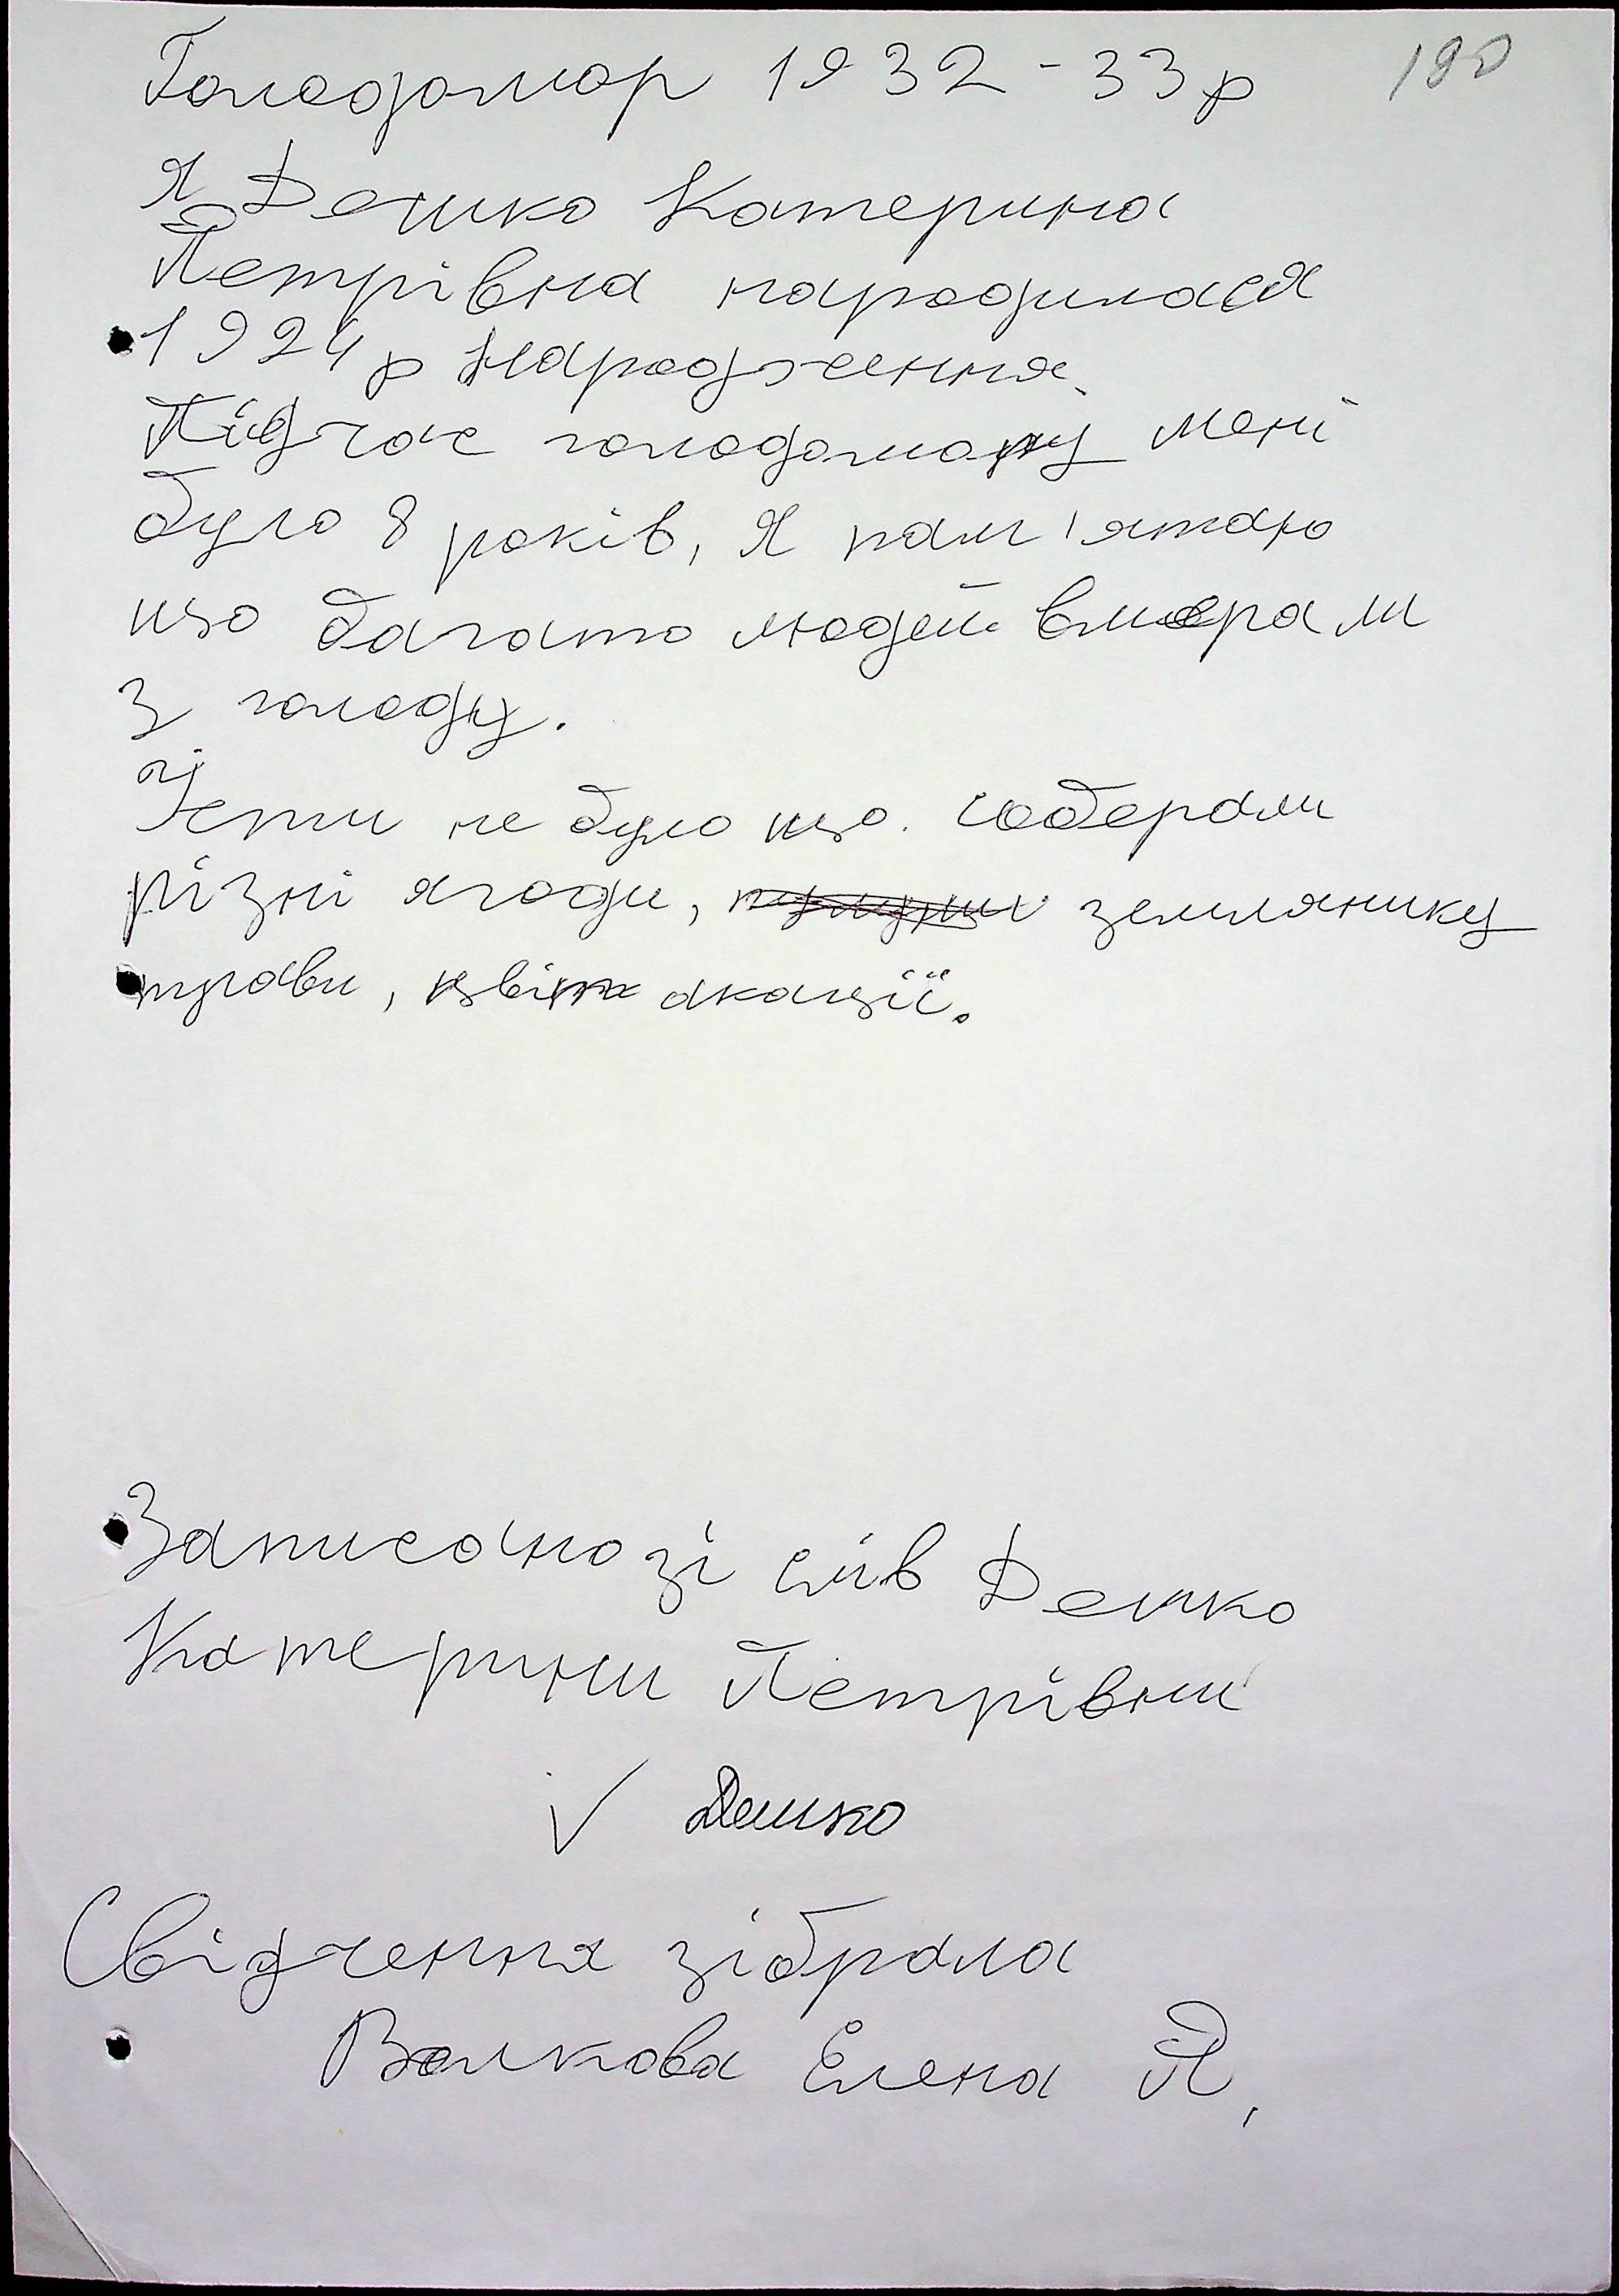 Голодомор 1932-33р
190
Я Дешко Катерина
Петрівна народилася
1924р народження.
Підчас голодомору мені
було 8 років, Я пам'ятаю
що багато людей вмерали
з голоду.
Їсти не було що. Соберали
різні ягоди, землянику
трави, квіти акації.
Записано зі слів Дешко
Катерини Петрівни
✓ Дешко
Свідчення зібрала
Волкова Елена П,